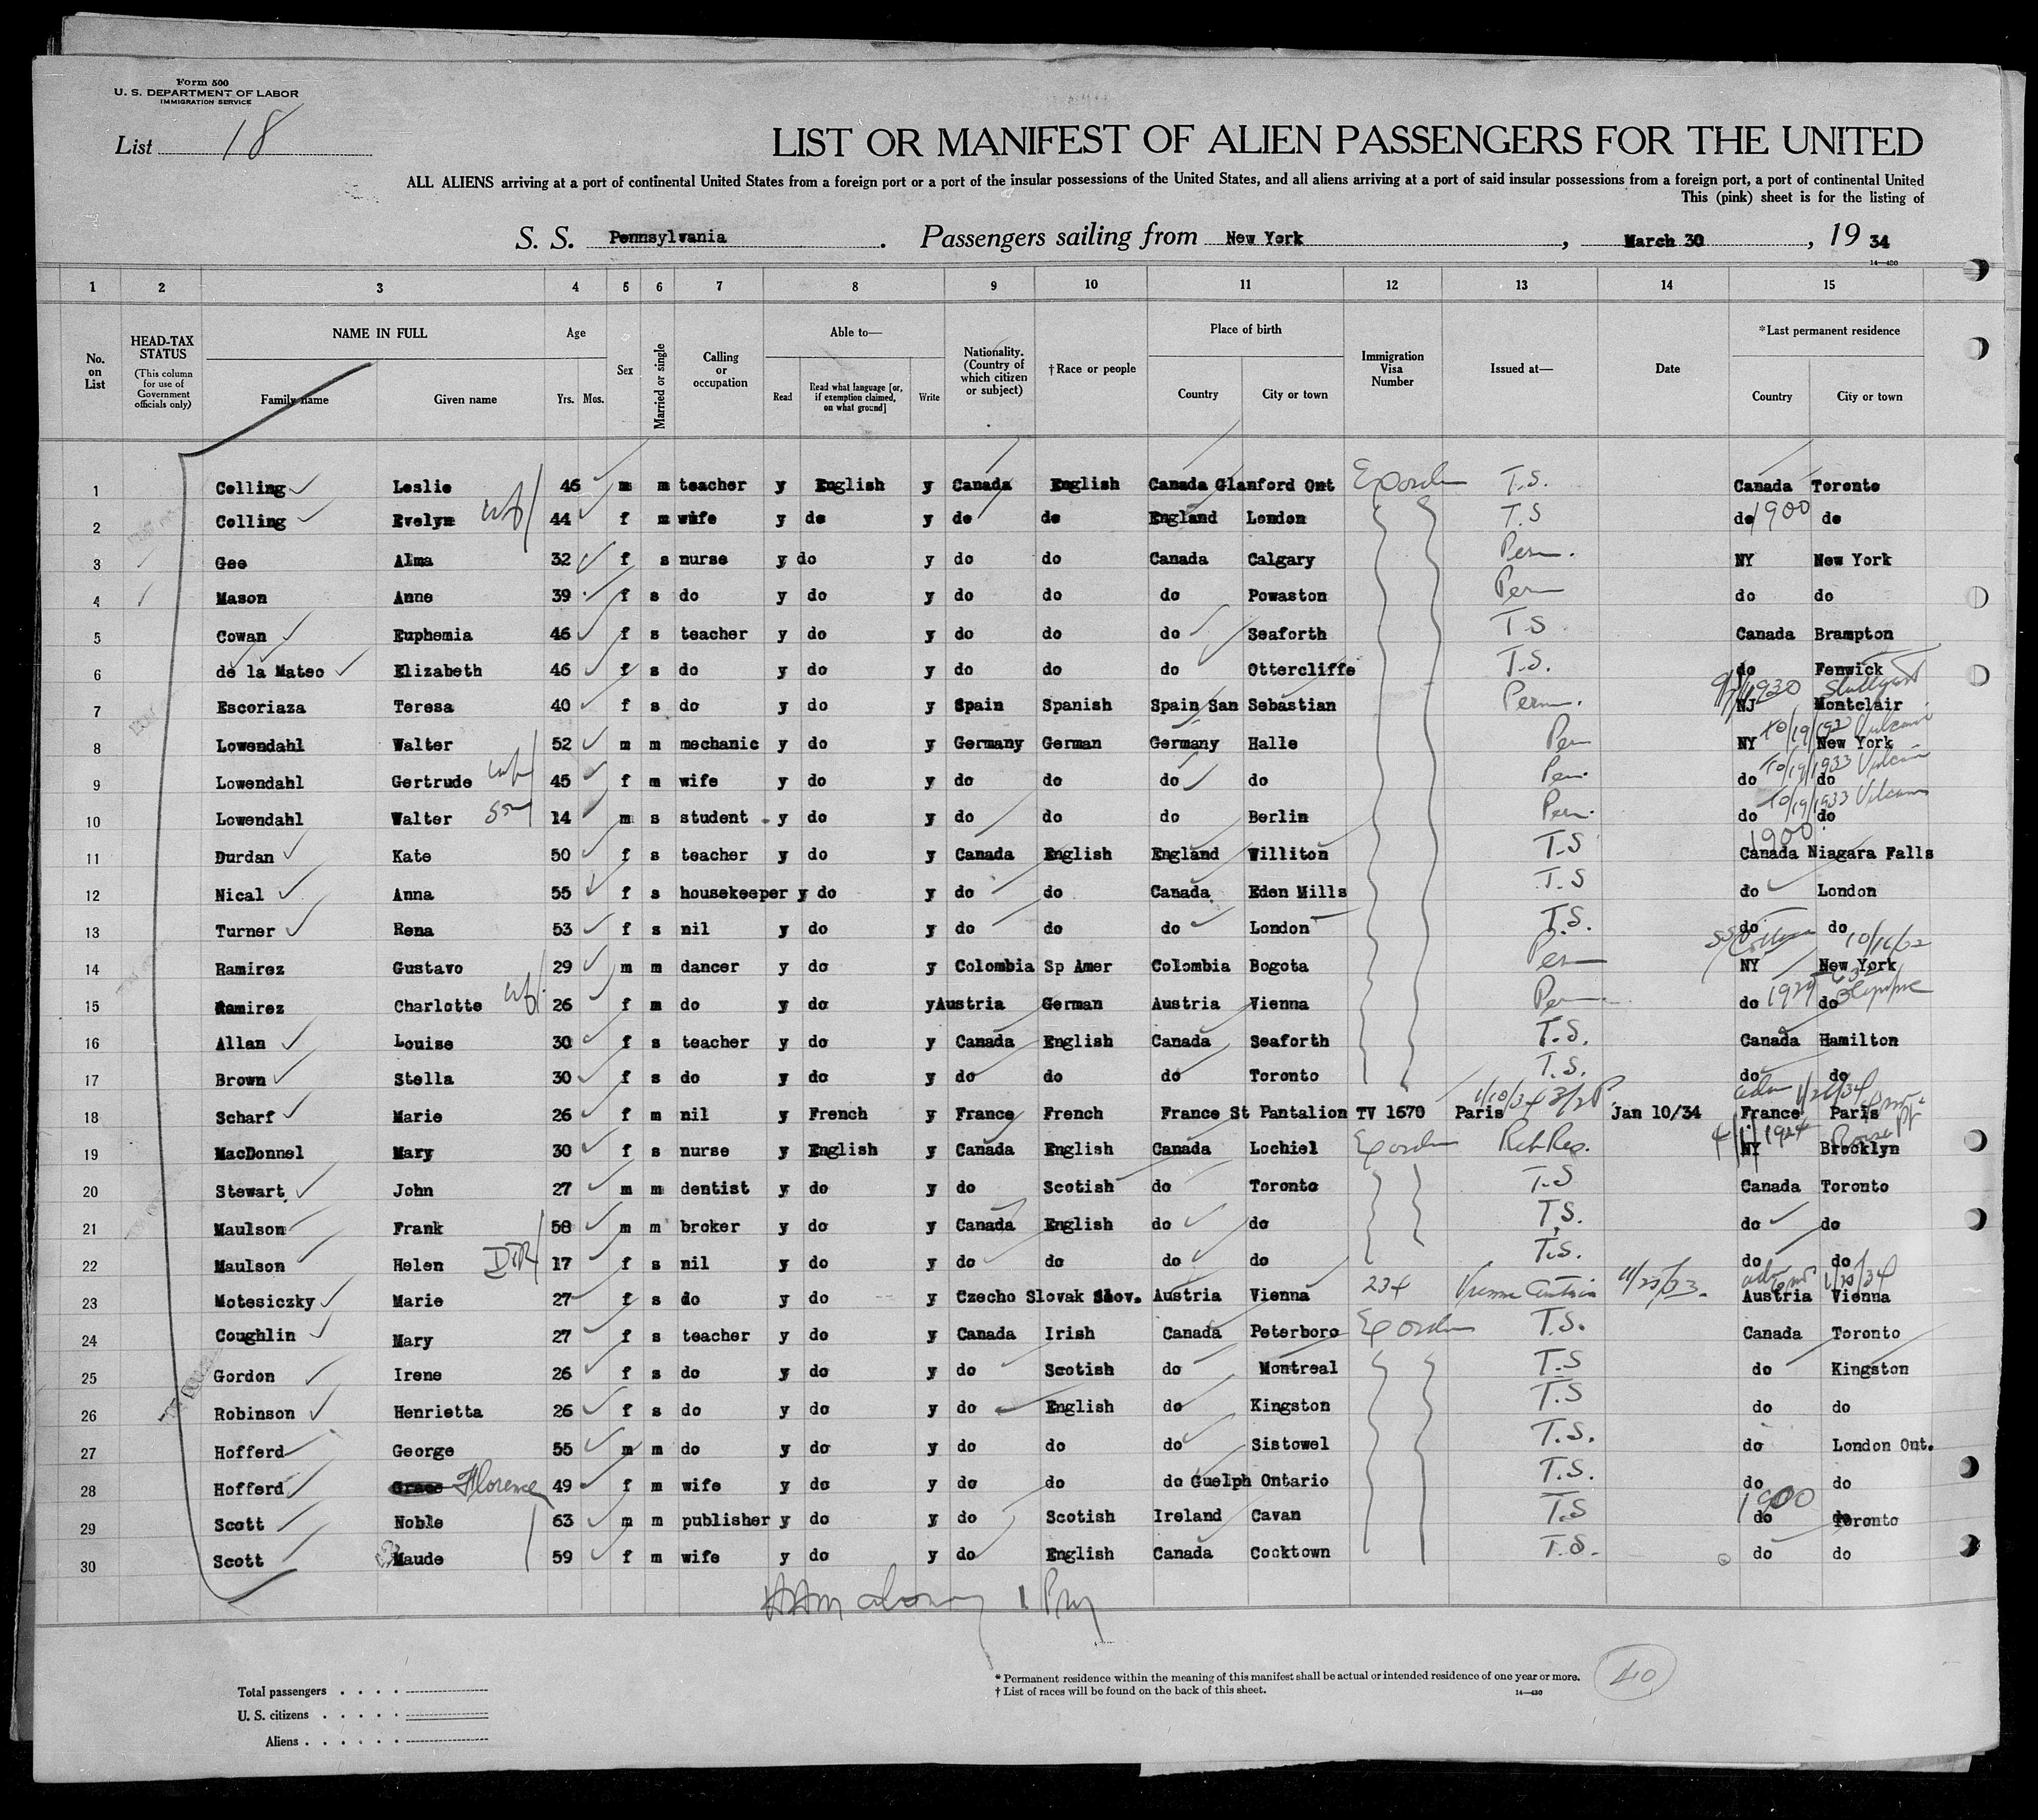 Form 500
U. S. DEPARTMENT OF LABOR
IMMIGRATION SERVICE
List 18
LIST OR MANIFEST OF ALIEN PASSENGERS FOR THE UNITED
ALL ALIENS arriving at a port of continental United States from a foreign port or a port of the insular possessions of the United States, and all aliens arriving at a port of said insular possessions from a foreign port, a port of continental United
This (pink) sheet is for the listing of
S. S. Pennsylvania . Passengers sailing from New York , March 30 , 19 34
14—430
1 2 3 4 5 6 7 8 9 10 11 12 13 14 15
No. on List
HEAD-TAX STATUS (This column for use of Government officials only)
NAME IN FULL Family name Given name
Age Yrs. Mos.
Sex
Married or single
Calling or occupation
Able to— Read Read what language [or, if exemption claimed, on what ground] Write
Nationality. (Country of which citizen or subject)
†Race or people
Place of birth Country City or town
Immigration Visa Number
Issued at—
Date
*Last permanent residence Country City or town
1 Colling Leslie 46 m m teacher y English y Canada English Canada Glanford Ont T.S. Canada Toronto
2 Colling Evelyn wf 44 f m wife y do y do do England London T.S do 1900 do
3 Gee Alma 32 f s nurse y do y do do Canada Calgary Perm. NY New York
4 Mason Anne 39 f s do y do y do do do Powaston Perm do do
5 Cowan Euphemia 46 f s teacher y do y do do do Seaforth T.S. Canada Brampton
6 de la Mateo Elizabeth 46 f s do y do y do do do Ottercliffe T.S. do Fenwick
7 Escoriaza Teresa 40 f s do y do y Spain Spanish Spain San Sebastian Perm. NJ Montclair
8 Lowendahl Walter 52 m m mechanic y do y Germany German Germany Halle Per NY New York
9 Lowendahl Gertrude wf 45 f m wife y do y do do do do Per. do 10/19/1933 Vulcania do
10 Lowendahl Walter son 14 m s student y do y do do do Berlin Per. do 10/19/1933 do
11 Durdan Kate 50 f s teacher y do y Canada English England Williton T.S 1900 Canada Niagara Falls
12 Nical Anna 55 f s housekeeper y do y do do Canada Eden Mills T.S do London
13 Turner Rena 53 f s nil y do y do do do London T.S. do do
14 Ramirez Gustavo 29 m m dancer y do y Colombia Sp Amer Colombia Bogota Per NY New York
15 Ramirez Charlotte wf. 26 f m do y do y Austria German Austria Vienna Per do do
16 Allan Louise 30 f s teacher y do y Canada English Canada Seaforth T.S. Canada Hamilton
17 Brown Stella 30 f s do y do y do do do Toronto T.S. do do
18 Scharf Marie 26 f m nil y French y France French France St Pantalion TV 1670 Paris Jan 10/34 France Paris
19 MacDonnel Mary 30 f s nurse y English y Canada English Canada Lochiel NY Brooklyn
20 Stewart John 27 m m dentist y do y do Scotish do Toronto T.S Canada Toronto
21 Maulson Frank 58 m m broker y do y Canada English do do T.S. do do
22 Maulson Helen 17 f s nil y do y do do do do T.S. do do
23 Motesiczky Marie 27 f s do y do y Czecho Slovak Slov. Austria Vienna 234 11/23/33. Austria Vienna
24 Coughlin Mary 27 f s teacher y do y Canada Irish Canada Peterboro T.S. Canada Toronto
25 Gordon Irene 26 f s do y do y do Scotish do Montreal T.S do Kingston
26 Robinson Henrietta 26 f s do y do y do English do Kingston T.S do do
27 Hofferd George 55 m m do y do y do do do Sistowel T.S. do London Ont.
28 Hofferd Grace Florence 49 f m wife y do y do do do Guelph Ontario T.S. do do
29 Scott Noble 63 m m publisher y do y do Scotish Ireland Cavan T.S 1900 do Toronto
30 Scott Maude 59 f m wife y do y do English Canada Cooktown T.S. do do
*Permanent residence within the meaning of this manifest shall be actual or intended residence of one year or more.
† List of races will be found on the back of this sheet. 14—430
40
Total passengers . . . .
U. S. citizens . . . . .
Aliens . . . . . .